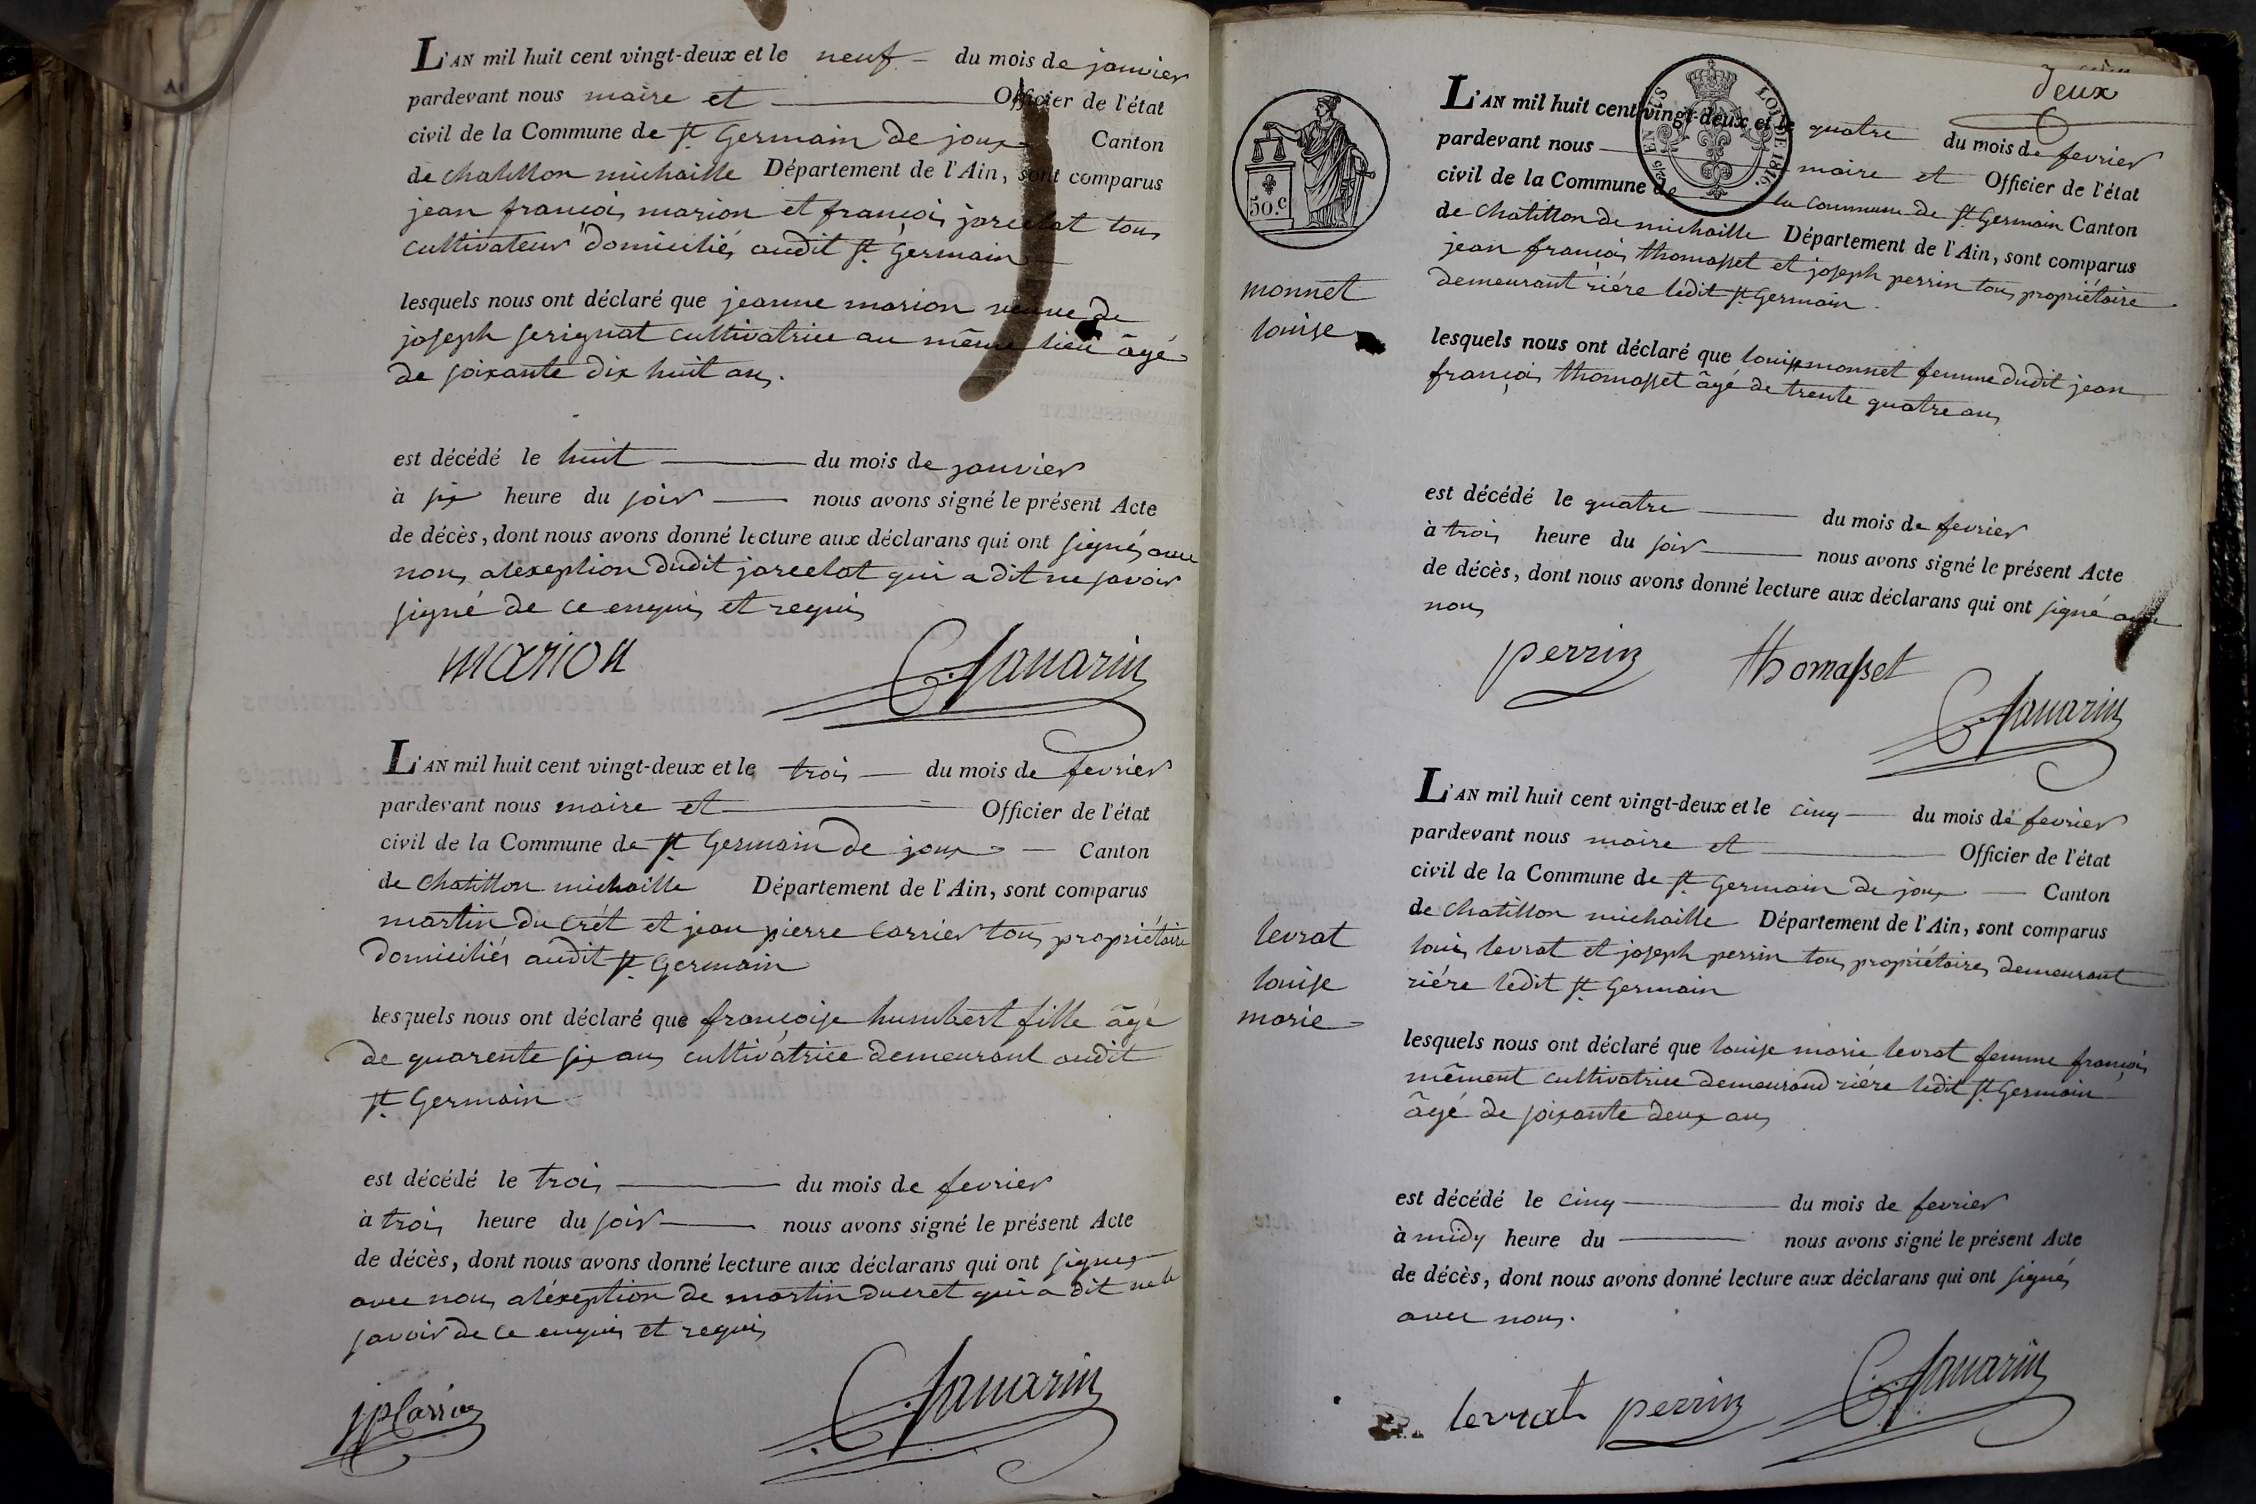 L'AN mil huit cent vingt-deux et le neuf du mois de janvier
pardevant nous maire et Officier de l'état
civil de la Commune de St Germain de joux Canton
de chatillon michaille Département de l'Ain, sont comparus
jean francois marion et francois jarcelat tous
cultivateur domiciliés audit St Germain
lesquels nous ont déclaré que jeanne marion veuve de
joseph serignat cultivatrice au même lieu âgé
de soixante dix huit ans.
est décédé le huit du mois de janvier
à six heure du soir nous avons signé le présent Acte
de décès, dont nous avons donné lecture aux déclarans qui ont signés avec
nous, alexeption dudit jarcelat qui a dit ne savoir
signé de ce enquis et requis
marion
C. Savarin
L'AN mil huit cent vingt-deux et le trois du mois de fevrier
pardevant nous maire et Officier de l'état
civil de la Commune de St Germain de joux Canton
de chatillon michaille Département de l'Ain, sont comparus
martin du Crét et jean pierre Carrier tous propriétaire
domiciliés audit St Germain
lesquels nous ont déclaré que françoise humbert fille âgé
de quarente six ans cultivatrice demeurant audit
St Germain
est décédé le trois du mois de fevrier
à trois heure du soir nous avons signé le présent Acte
de décès, dont nous avons donné lecture aux déclarans qui ont signés
avec nous, aléxeption de martin ducret qui a dit ne le
savoir de ce enquis et requis
jpCarrier
C. Savarin
Deux
LOI DE 1816.
50.c
L'AN mil huit cent vingt-deux et le quatre du mois de fevrier
pardevant nous maire et Officier de l'état
civil de la Commune de la commune de St Germain Canton
de chatillon de michaille Département de l'Ain, sont comparus
jean francois thomasset et joseph perrin tous propriétaire
demeurant riére ledit St Germain.
monnet
louise
lesquels nous ont déclaré que louise monnet femme dudit jean
françois thomasset âgé de trente quatre ans
est décédé le quatre du mois de fevrier
à trois heure du soir nous avons signé le présent Acte
de décès, dont nous avons donné lecture aux déclarans qui ont signé avec
nous
perrin thomasset
C. Savarin
L'AN mil huit cent vingt-deux et le cinq du mois de fevrier
pardevant nous maire et Officier de l'état
civil de la Commune de St Germain de joux Canton
de chatillon michaille Département de l'Ain, sont comparus
louis levrat et joseph perrin tous propriétaires demeurant
riére ledit St Germain
levrat
louise
marie
lesquels nous ont déclaré que louise marie levrat femme françois
mêment cultivatrice demeurand riére ledit St Germain
âgé de soixante deux ans
est décédé le cinq du mois de fevrier
à midy heure du nous avons signé le présent Acte
de décès, dont nous avons donné lecture aux déclarans qui ont signés
avec nous.
levrat perrin C. Savarin